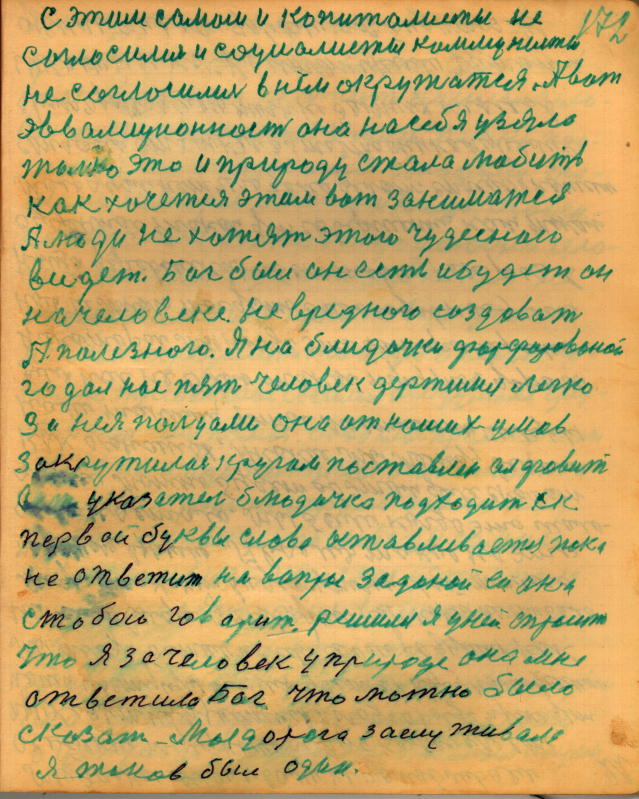 с этим самом и копиталисты не 172
согласилися и социалисты коммунисты
не согласилися в нём окружатся. А вот
эввалюционност она на себя узяла
только это и природу стала любить
как хочется этим вот заниматся
А люди не хотят этого чудесного
видет. Бог был он есть и будет он
на человеке. не вредного создоват
А полезного. Я на блидочки форфоровоной
годал нас пят человек держимся легко
за нея пол уами она от наших умов
закрутилася кругам поставлен алфовит
указател блюдочка подходит к
первой буквы слова оставливается пока
не ответит на вапрос заданой ей она
с тобою говарит. решился я у ней спросит
что я за человек у природе она мне
ответила Бог что можно было
сказат Моя дорога заслуживала
я таков был один.